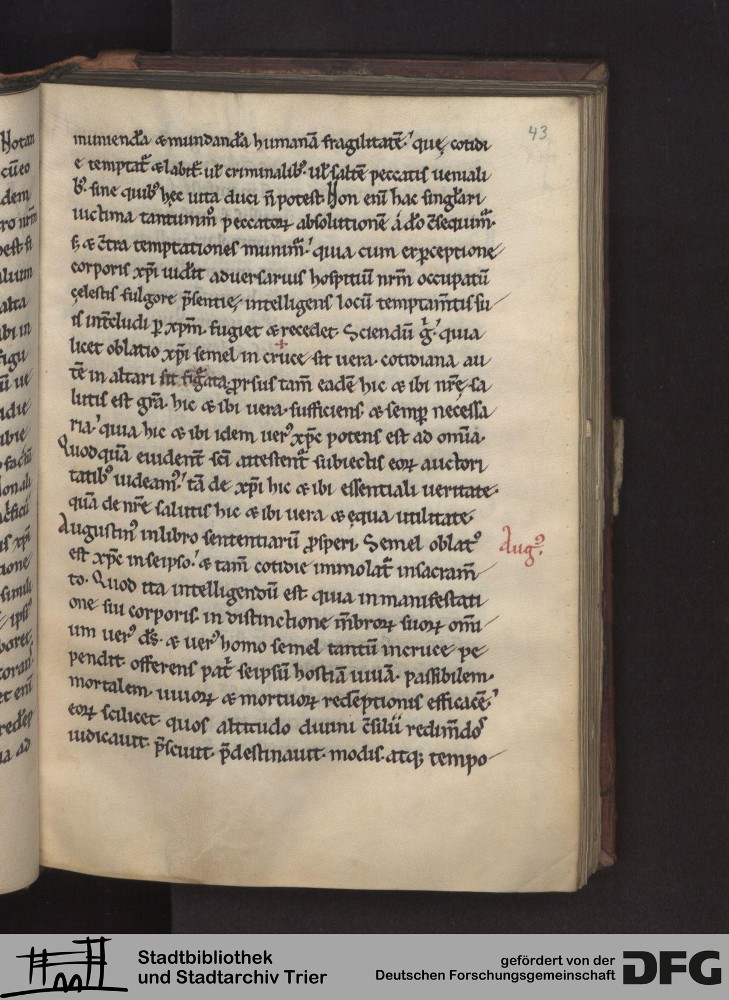 43
muniendā & mundandā humanā fragilitatē. quę cotidi
e temptat̄ & labit̄. ul̄ criminalib᷒. ul̄ saltē peccatis veniali
b᷒. sine quib᷒ hęc uita duci n̄ potest. Non eni᷑ hac singlari
uictima tantummō peccatoꝝ absolutionē á dō c̄sequim᷒.
s; & c̄tra temptationes munim᷒. quia cum ex pceptione
corporis xp̄i uidit aduersarius hospitiū nrm̄ occupatū
cęlestis fulgore p̄sentię, intelligens locū temptam̄tis su
is int̄cludi ꝑ xp̄m. fugiet & recedet. Sciendū g̊ quia
licet oblatio xp̄i semel in cruce sit uera. cotidiana au
tē in altari sit figata, ꝓrsus tam̄ eadē hic & ibi nrē sa
lutis est gr̄a. hic & ibi uera. sufficiens & semꝑ necessa
ria. quia hic & ibi idem uer᷒ xp̄c potens est ad om̄ia.
Quod quā euident̄ sc̄i attestent̄ subiectis eoꝝ auctori
tatib᷒ uideam᷒. tā de xp̄i hic & ibi essentiali ueritate.
quā de nrē salutis hic & ibi uera & ęqua utilitate.
Augustin᷒ in libro sententiarū ꝓsperi. Semel oblat᷒
Aug᷒.
est xp̄c in seipso. & tam̄ cotidie immolat̄ in sacram̄
to. Quod ita intelligendū est quia in manifestati
one sui corporis. in distinctione m̄broꝝ suoꝝ om̄i
um uer᷒ ds̄. & uer᷒ homo semel tantū in cruce pe
pendit. offerens pat̄ seipsū hostiā uiuā. passibilem.
mortalem. uiuoꝝ & mortuoꝝ redēptionis efficacē.
eoꝝ scilicet quos altitudo diuini c̄silii redim̄dos
iudicauit. p̄sciuit. p̄destinauit. modis. atq; tempo
Stadtbibliothek
und Stadtarchiv Trier
gefördert von der
Deutschen Forschungsgemeinschaft
DFG